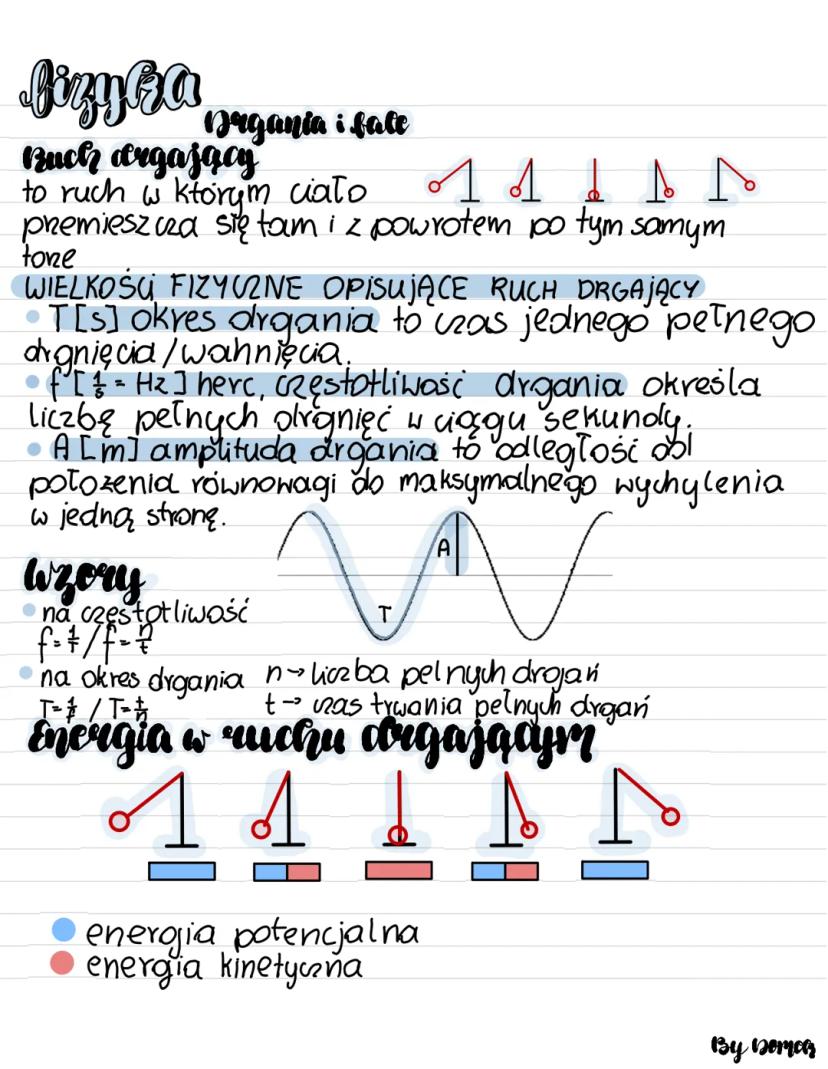 fizyka
Drgania i fale
Ruch drgający
to ruch w którym ciało
przemieszcza się tam i z powrotem po tym samym
torze
WIELKOŚCI FIZYCZNE OPISUJĄCE RUCH DRGAJĄCY
• T[s] okres drgania to czas jednego pełnego
drgnięcia/wahnięcia.
• f [1/s = Hz] herc, częstotliwość drgania określa
liczbę pełnych drgnięć w ciągu sekundy.
• A [m] amplituda drgania to odległość od
położenia równowagi do maksymalnego wychylenia
w jedną stronę.
A
T
Wzory
• na częstotliwość
f=1/T / f=n/t
• na okres drgania n→liczba pelnych drgań
T=1/f / T=t/n t→ czas trwania pełnych drgań
Energia w ruchu drgającym
energia potencjalna
energia kinetyczna
By